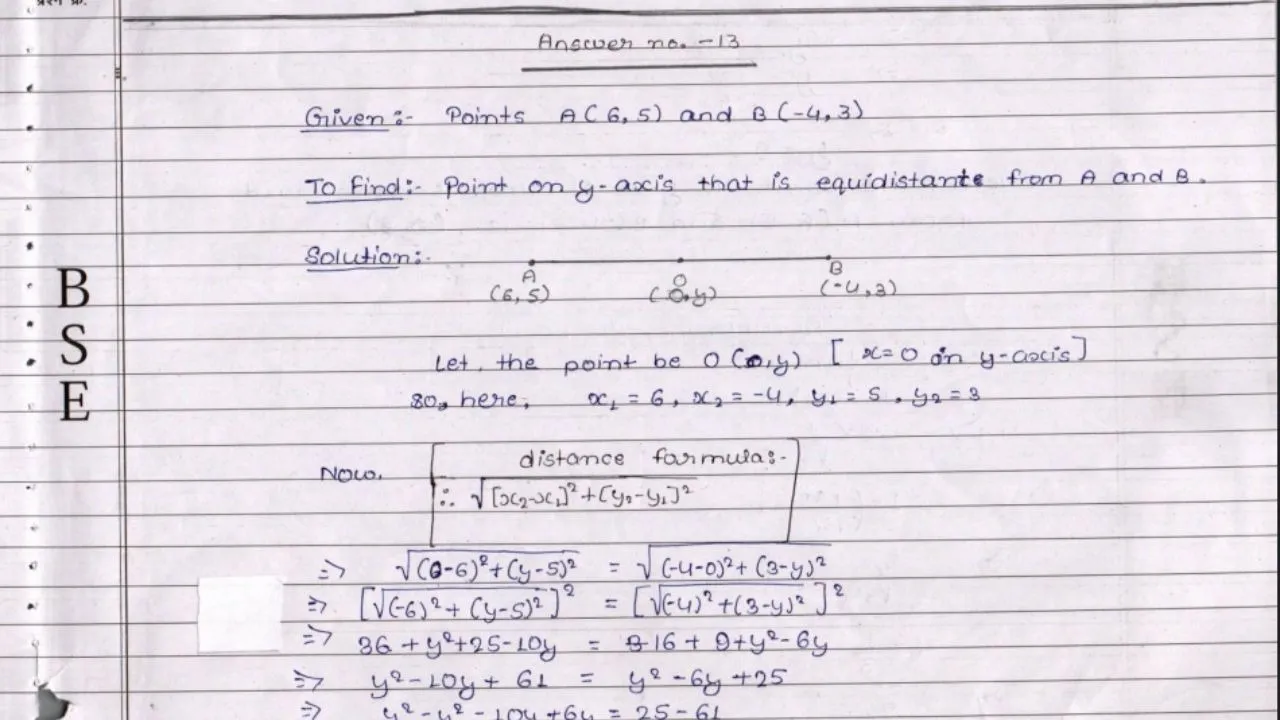 प्रश्न क्र.
Answer no. -13
Given :- Points A(6,5) and B(-4,3)
To Find:- Point on y-axis that is equidistante from A and B.
Solution:-
A O B
(6,5) (0,y) (-4,3)
Let, the point be O (0,y) [ x=0 on y-axis]
So, here, x₁ = 6, x₂ = -4, y₁ = 5, y₂ = 3
distance farmula:-
Now,
∴ √[x₂-x₁]²+[y₂-y₁]²
=> √(0-6)²+(y-5)² = √(-4-0)²+(3-y)²
=> [√(-6)²+(y-5)²]² = [√(-4)²+(3-y)²]²
=> 36+y²+25-10y = 16+9+y²-6y
=> y²-10y+61 = y²-6y+25
=> y²-y²-10y+6y = 25-61
B
S
E